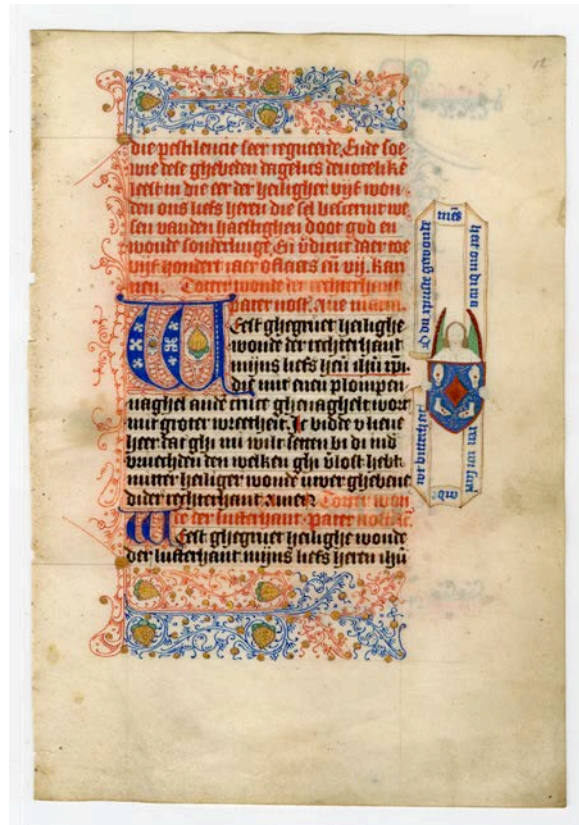 12
die pestilencie seer regneerde. Ende soe
wie dese ghebeden dagelics deuotelikē
leest in die eer der heiligher vijf won-
den ons liefs heren die sel bescermt we-
sen vanden haestighen doot god en
wonde sonderlinge. Eñ v̄dient daer toe
vijf hondert iaer oflaets eñ vij. karı
nen. Totter wonde der rechterhant
pater nost'. Aue maria.
Weest ghegruet heilighe
wonde der rechterhant
mijns liefs herē ihū xpī.
die mit enen plompen
naghel ande cruce ghenaghelt wort
mit groter wreetheit. Ic bidde v lieue
heer dat ghi mi wilt setten bi di mīs
vruechden den welken ghi v̄lost hebt
mitter heiliger wonde uwer ghebene
dider rechterhant amen Totter won
de der lufterhant. Pater noster.
Weest ghegruet heilighe wonde
der lufterhant mijns liefs heren ihū
O du
gewonde
mēs
hert
wt bitterheit